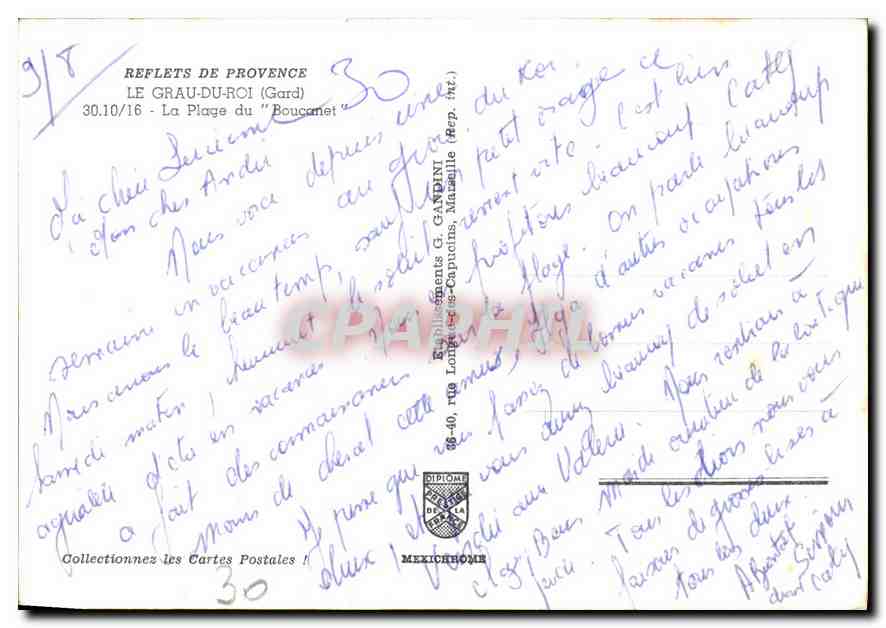 9/8
REFLETS DE PROVENCE
LE GRAU-DU-ROI (Gard)
30.10/16 - La Plage du "Boucanet"
30
Ma chère Lucienne
Mon cher André
Nous voici depuis une
semaine en vacances au grau du Roi.
Nous avons le beau temps, sauf un petit orage ce
samedi matin, heureusement le soleil revient vite. C'est bien
agréable d'être en vacances. Nous en profitons beaucoup. Cathy
a fait des connaissances sur la plage. On parle beaucoup
moins de cheval cette année, il y a d'autres occupations
Je pense que vous passez de bonnes vacances tous les
deux, vous avez beaucoup de soleil en
Vendée aux Valens. Nous rentrons à
Bons
Tous les trois nous vous
faisons de grosses bises à
tous les deux.
A Bientôt
Cathy
Etablissements G. GANDINI
36-40, rue Longue-des-Capucins, Marseille (Rep. int.)
CPAPHIL
DIPLOME
PRESTIGE
DE LA
FRANCE
MEXICHROME
Collectionnez les Cartes Postales !
30